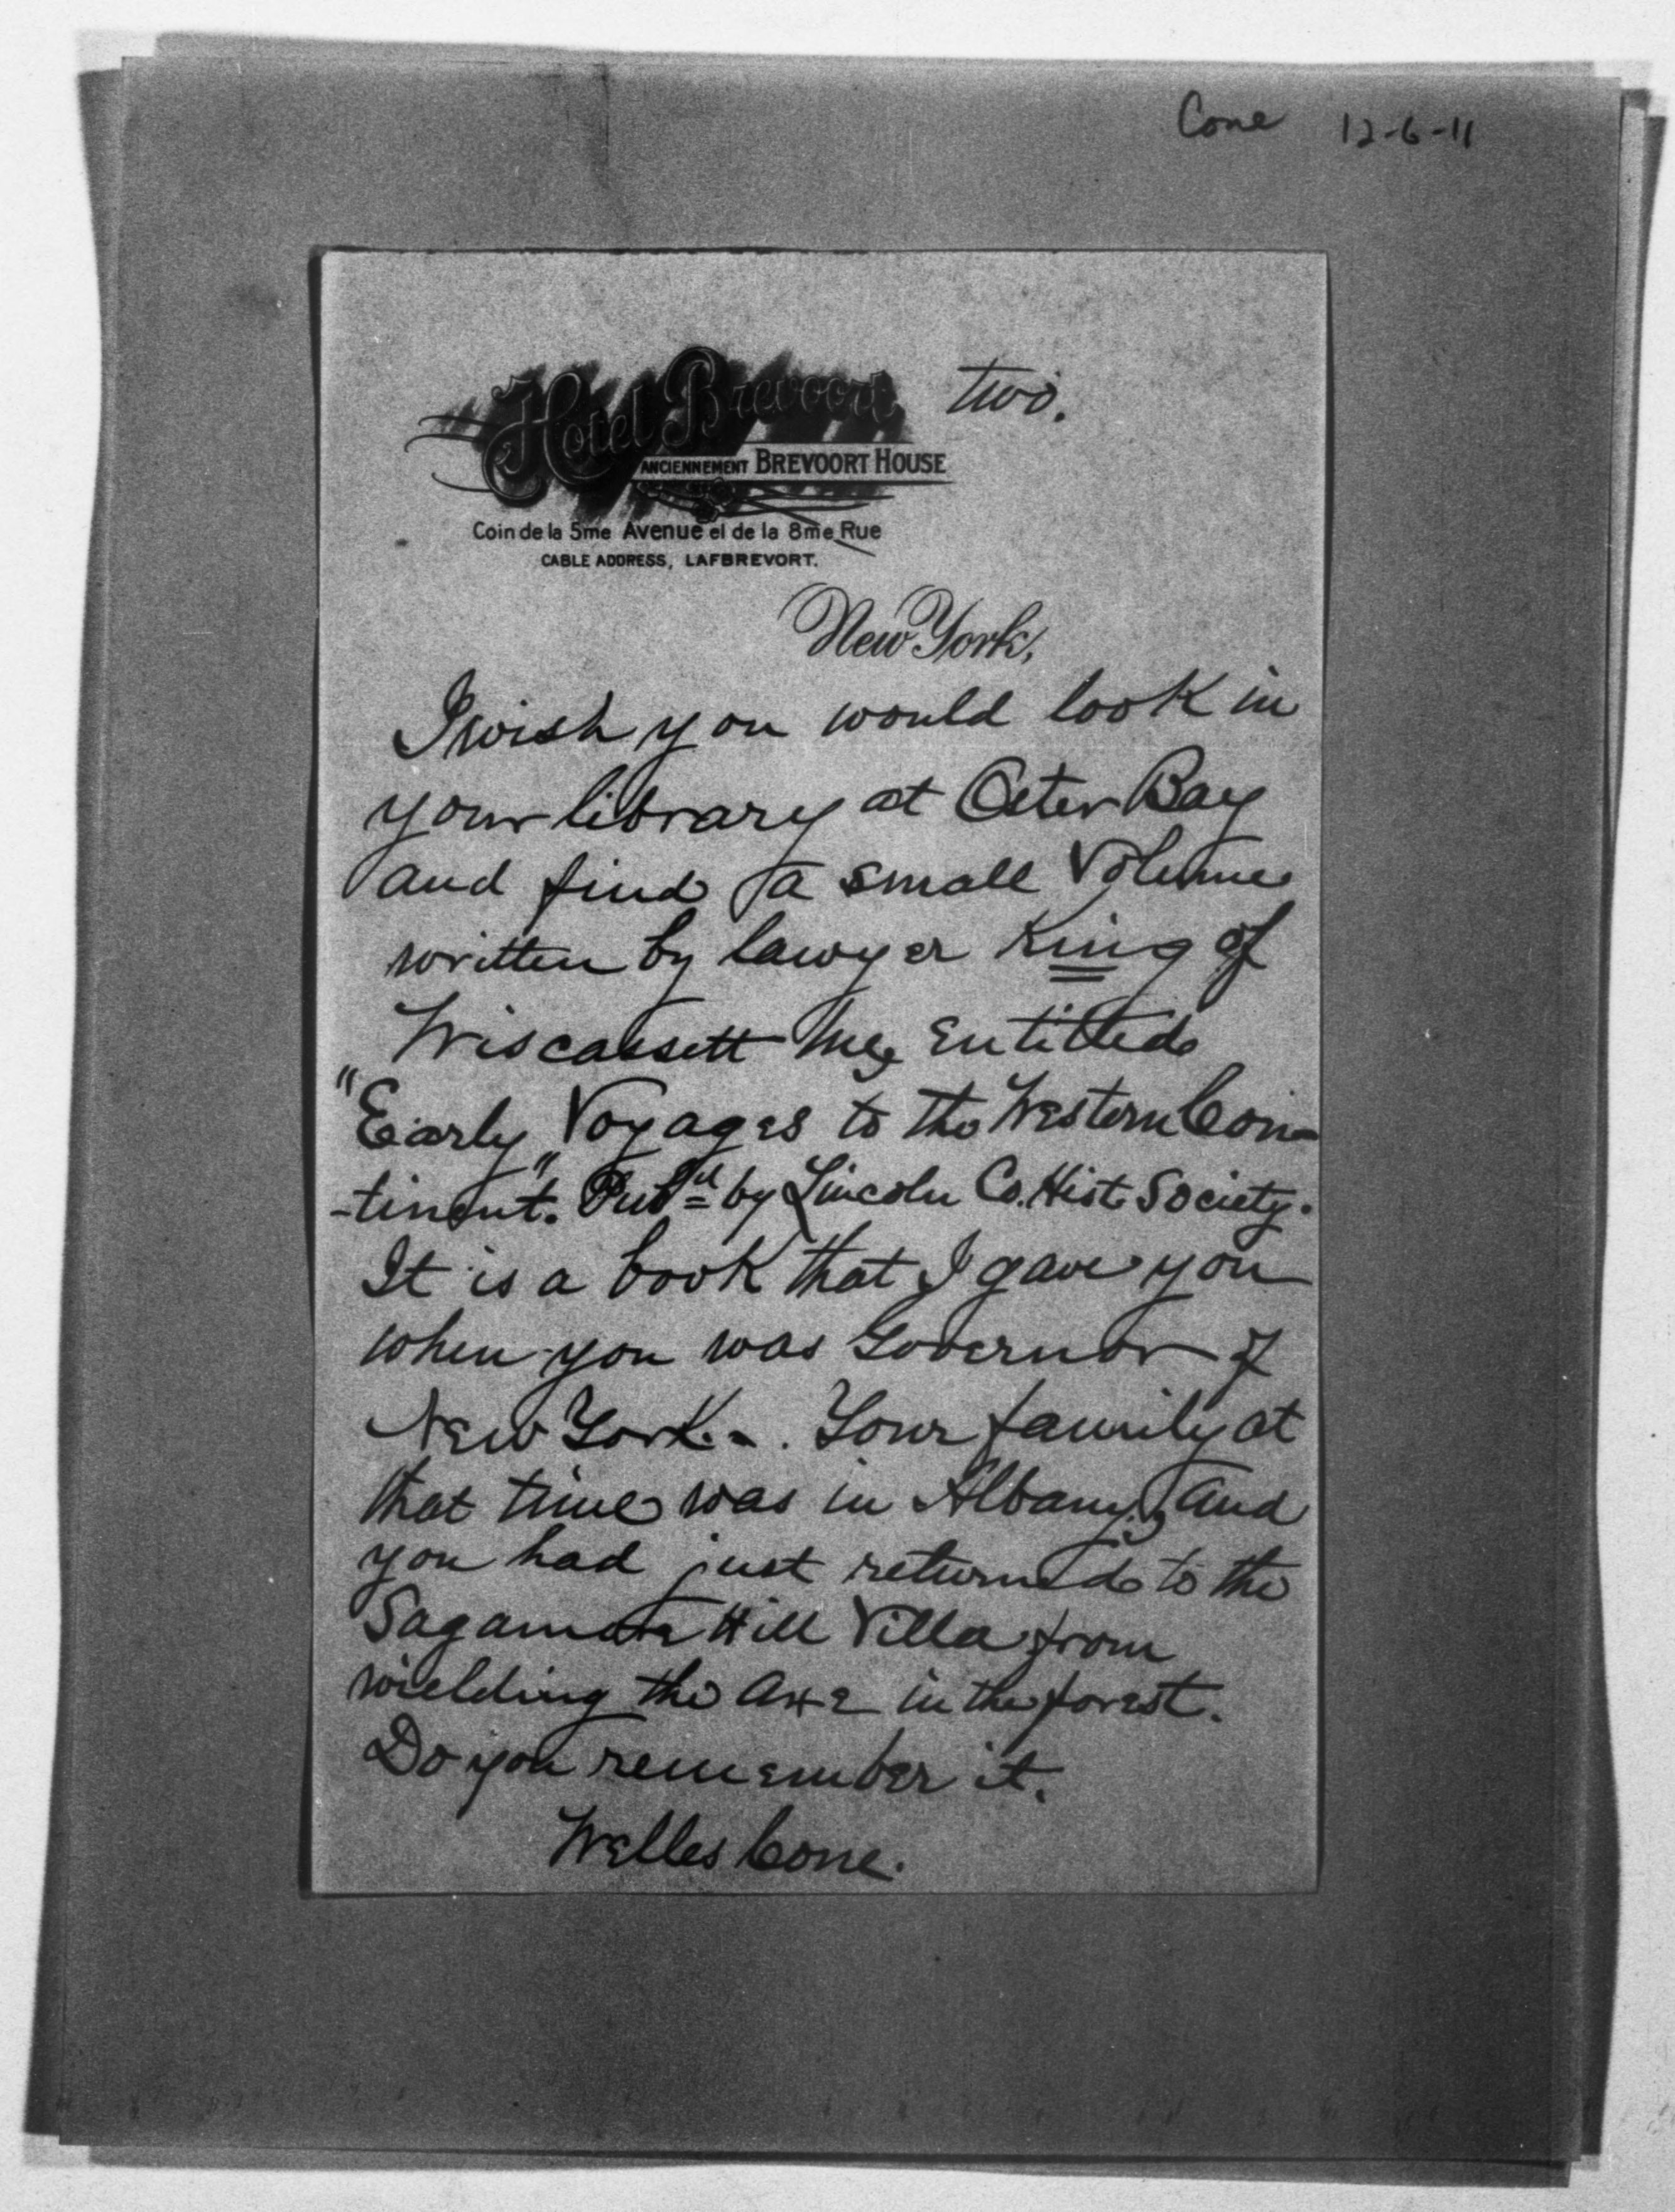 Cone 12-6-11
Hotel Brevoort two.
ANCIENNEMENT BREVOORT HOUSE
Coin de la 5me Avenue et de la 8me Rue
CABLE ADDRESS, LAFBREVORT.
New York,
I wish you would look in
your library at Oster Bay
and find a small Volume
written by lawyer King of
Wiscassett Me, Entitled
"Early Voyages to the Western Con-
-tinent." Pub.d by Lincoln Co. Hist Society.
It is a book that I gave you
when you was Governor of
New York. - . Your family at
that time was in Albany, and
you had just returned to the
Sagamore Hill Villa from
wielding the axe in the forest.
Do you remember it.
Welles Cone.